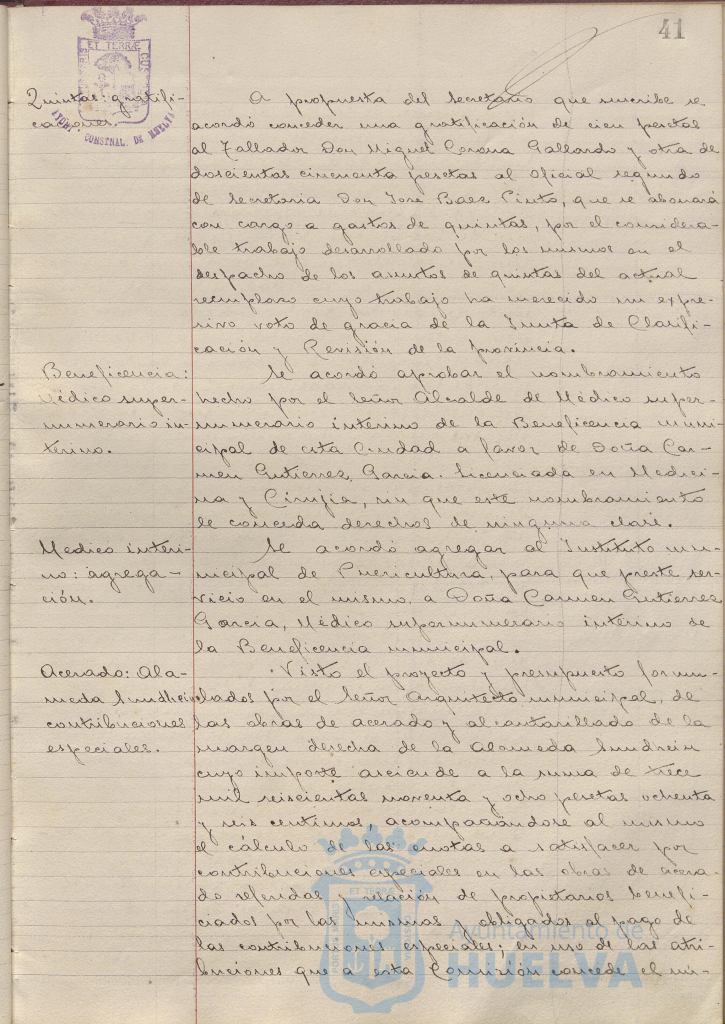 41
Quintas: gratifi-
caciones.
A propuesta del Secretario que suscribe se
acordó conceder una gratificación de cien pesetas
al Tallador Don Miguel Corona Gallardo y otra de
doscientas cincuenta pesetas al Oficial segundo
de Secretaria Don José Baez Pinto, que se abonará
con cargo a gastos de quintas, por el considera-
ble trabajo desarrollado por los mismos en el
despacho de los asuntos de quintas del actual
reemplazo cuyo trabajo ha merecido un expre-
sivo voto de gracia de la Junta de Clasifi-
cación y Revisión de la provincia.
Beneficencia:
Médico super-
numerario in-
terino.
Se acordó aprobar el nombramiento
hecho por el Señor Alcalde de Médico super-
numerario interino de la Beneficencia muni-
cipal de esta Ciudad a favor de Doña Car-
men Gutierrez Garcia. Licenciada en Medici-
na y Cirujía, sin que este nombramiento
le conceda derechos de ninguna clase.
Medico interi-
no: agrega-
ción.
Se acordó agregar al Instituto mu-
nicipal de Puericultura, para que preste ser-
vicio en el mismo, a Doña Carmen Gutierrez
Garcia, Médico supernumerario interino de
la Beneficencia municipal.
Acerado: Ala-
meda Sundheim
contribuciones
especiales.
Visto el proyecto y presupuesto formu-
lados por el Señor Arquitecto municipal, de
las obras de acerado y alcantarillado de la
margen derecha de la Alameda Sundheim
cuyo importe asciende a la suma de trece
mil seiscientas noventa y ocho pesetas ochenta
y seis centimos, acompañándose al mismo
el cálculo de las cuotas a satisfacer por
contribuciones especiales en las obras de acera-
do referidas y relación de propietarios benefi-
ciados por las mismas y obligados al pago de
las contribuciones especiales; en uso de las atri-
buciones que a esta Comisión concede el nú-
ET TERRÆ CUS
AYUNT. CONSTNAL. DE HUELVA
Ayuntamiento de
HUELVA